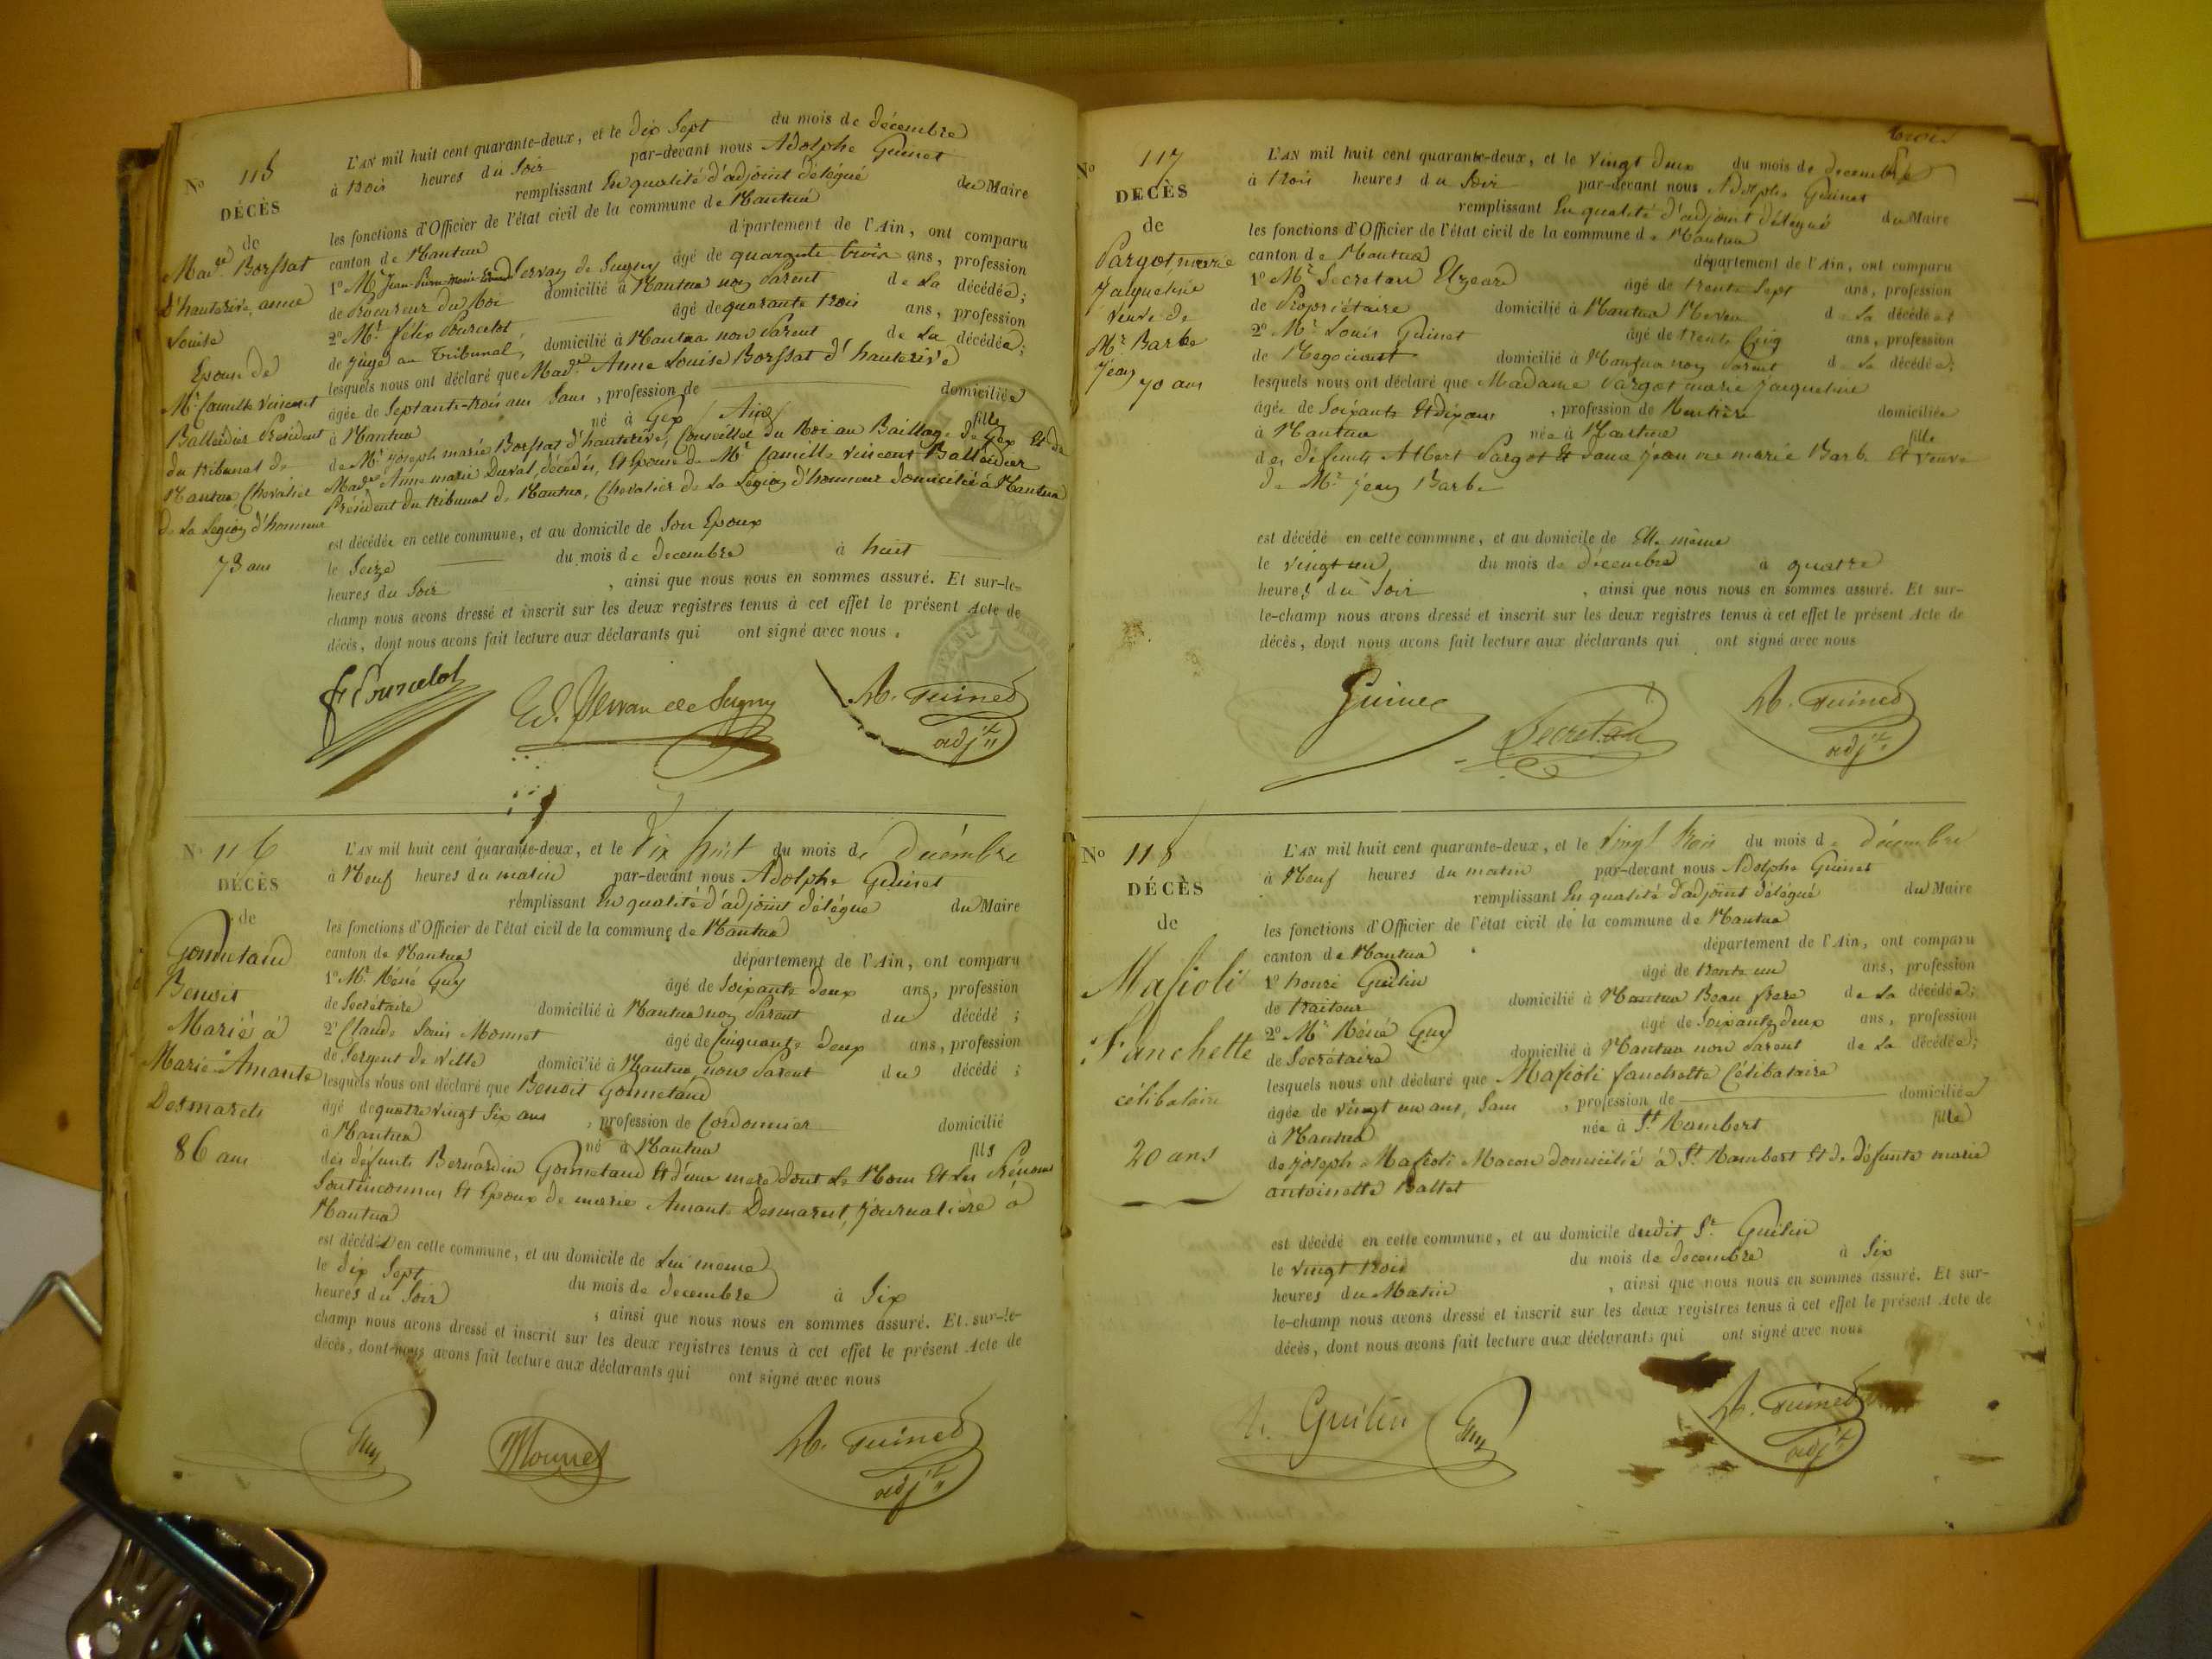 N° 115
DÉCÈS
de
Mad.e Borssat
d'hauterive, anne
Louise
Epouse de
Mr. Camille Vincent
Balleidier Président
du tribunal de
Nantua, Chevalier
de la Légion d'honneur
73 ans
L'AN mil huit cent quarante-deux, et le dix Sept du mois de décembre
à trois heures du Soir par-devant nous Adolphe Guinet
remplissant En qualité d'adjoint délégué du Maire
les fonctions d'Officier de l'état civil de la commune de Nantua
canton de Nantua département de l'Ain, ont comparu
1° Mr. Jean-Pierre-Marie Servan de Sugny âgé de quarante trois ans, profession
de Procureur du Roi domicilié à Nantua non Parent de la décédée;
2° Mr. félix Pourcelot, âgé de quarante trois ans, profession
de juge au Tribunal, domicilié à Nantua non Parent de la décédée;
lesquels nous ont déclaré que Mad.e Anne Louise Borssat d'hauterive
âgée de Septante-trois ans Sans, profession de domiciliée
à Nantua né à Gex (Ain) fille
de Mr. joseph marie Borssat d'hauterive, Conseiller du Roi au Baillage de Gex Et de
Made Anne marie Duval, décédés, Et Epouse de Mr. Camille Vincent Balleidier
Président du tribunal de Nantua, Chevalier de la Légion d'honneur domicilié à Nantua
est décédée en cette commune, et au domicile de Son Epoux
le Seize du mois de decembre à huit
heures du Soir, ainsi que nous nous en sommes assuré. Et sur-le-
champ nous avons dressé et inscrit sur les deux registres tenus à cet effet le présent Acte de
décès, dont nous avons fait lecture aux déclarants qui ont signé avec nous.
f. Pourcelot Ed. Servan de Sugny Ad. Guinet
adj.t
N° 116
DÉCÈS
de
Gonnetand
Benoit
Marié à
Marie-Amante
Desmarets
86 ans
L'AN mil huit cent quarante-deux, et le Dix huit du mois de Décembre
à Neuf heures du matin par-devant nous Adolphe Guinet
remplissant En qualité d'adjoint délégué du Maire
les fonctions d'Officier de l'état civil de la commune de Nantua
canton de Nantua département de l'Ain, ont comparu
1° Mr. Réné Guy âgé de Soixante deux ans, profession
de Secrétaire domicilié à Nantua non Parent du décédé;
2° Claude Louis Monnet âgé de Cinquante deux ans, profession
de Sergent de Ville domicilié à Nantua non Parent du décédé;
lesquels nous ont déclaré que Benoit Gonnetand
âgé de quatre vingt Six ans, profession de Cordonnier domicilié
à Nantua né à Nantua fils
des défunts Bernardin Gonnetand Et d'une mere dont le Nom Et les Prénoms
Sont inconnus Et Epoux de marie Amante Desmaret, journalière à
Nantua
est décédé en cette commune, et au domicile de Lui meme
le dix Sept du mois de decembre à Six
heures du Soir, ainsi que nous nous en sommes assuré. Et sur-le-
champ nous avons dressé et inscrit sur les deux registres tenus à cet effet le présent Acte de
décès, dont nous avons fait lecture aux déclarants qui ont signé avec nous
Guy Monnet Ad. Guinet
adj.t
trois
N° 117
DÉCÈS
de
Pargot marie
jaqueline
veuve de
Mr. Barbe
jean
70 ans
L'AN mil huit cent quarante-deux, et le vingt deux du mois de decembre
à trois heures du Soir par-devant nous Adolphe Guinet
remplissant En qualité d'adjoint délégué du Maire
les fonctions d'Officier de l'état civil de la commune de Nantua
canton de Nantua département de l'Ain, ont comparu
1° Mr. Secretan Elzeard âgé de trente Sept ans, profession
de Propriétaire domicilié à Nantua Neveu de la décédée;
2° Mr. Louis Guinet âgé de trente Cinq ans, profession
de Negociant domicilié à Nantua non Parent de la décédée;
lesquels nous ont déclaré que Madame Pargot marie jacqueline
âgée de Soixante Et dix ans, profession de Rentière domiciliée
à Nantua née à Nantua fille
des défunts Albert Pargot Et Dame jeanne marie Barbe Et veuve
de Mr. jean Barbe
est décédé en cette commune, et au domicile de Elle même
le vingt un du mois de décembre à quatre
heures du Soir, ainsi que nous nous en sommes assuré. Et sur-
le-champ nous avons dressé et inscrit sur les deux registres tenus à cet effet le présent Acte de
décès, dont nous avons fait lecture aux déclarants qui ont signé avec nous
Guinet Secretan Ad. Guinet
adj.t
N° 118
DÉCÈS
de
Mafioli
Fanchette
célibataire
20 ans
L'AN mil huit cent quarante-deux, et le Vingt trois du mois de décembre
à Neuf heures du matin par-devant nous Adolphe Guinet
remplissant En qualité d'adjoint délégué du Maire
les fonctions d'Officier de l'état civil de la commune de Nantua
canton de Nantua département de l'Ain, ont comparu
1° henri Guélin âgé de trente un ans, profession
de traiteur domicilié à Nantua Beau frere de la décédée;
2° Mr. Réné Guy âgé de Soixante deux ans, profession
de Secrétaire domicilié à Nantua non Parent de la décédée;
lesquels nous ont déclaré que Mafioli fanchette Célibataire
âgée de vingt un ans, Sans, profession de domiciliée
à Nantua née à St. Rambert fille
de joseph Mafioli Macon domicilié à St. Rambert Et de défunte marie
antoinette Ballet
est décédé en cette commune, et au domicile dudit Sr. Guélin
le vingt trois du mois de decembre à Six
heures du Matin, ainsi que nous nous en sommes assuré. Et sur-
le-champ nous avons dressé et inscrit sur les deux registres tenus à cet effet le présent Acte de
décès, dont nous avons fait lecture aux déclarants qui ont signé avec nous
h. Guélin Guy Ad. Guinet
adj.t